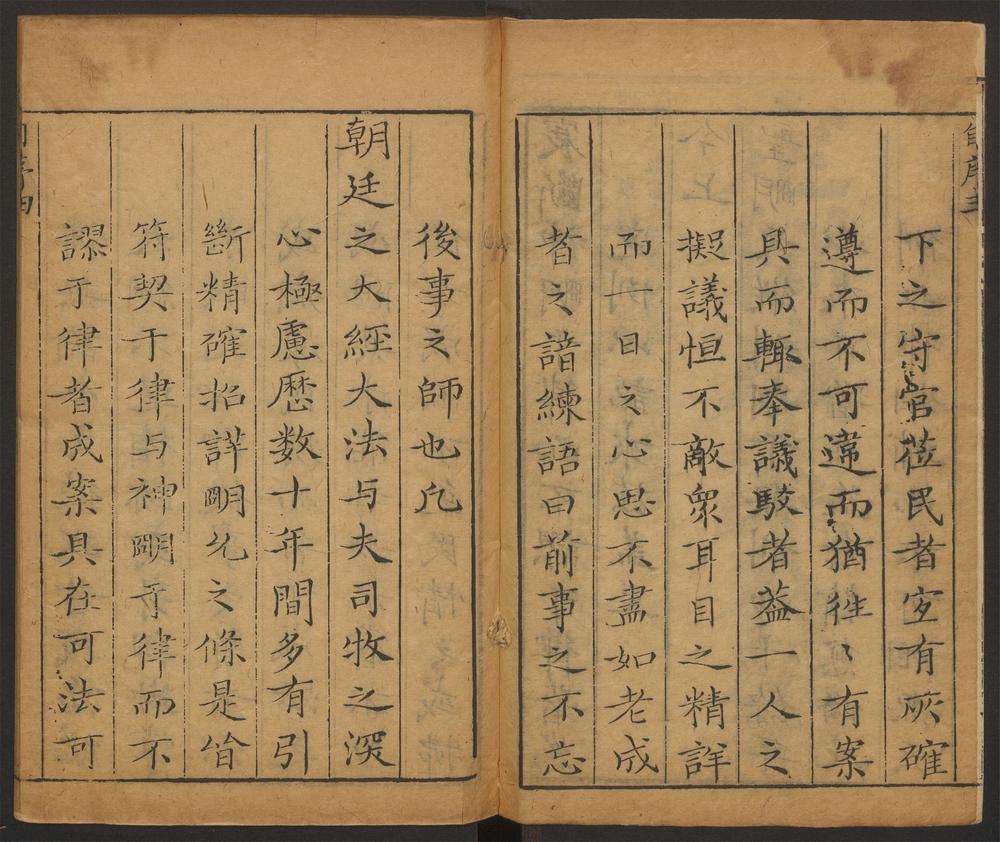 自序三
下之守官莅民者宐有灰確
遵而不可違而猶徃〻有案
具而輙奉議駁者葢一人之
擬議恒不敵衆耳目之精詳
而一日之心思不盡如老成
者之諳練語曰前事之不忘
後事之師也凢
朝廷之大經大法与夫司牧之深
心極慮歷数十年間多有引
斷精確招詳朙允之條是皆
符契于律与神朙乎律而不
謬于律者成案具在可法可
自序四